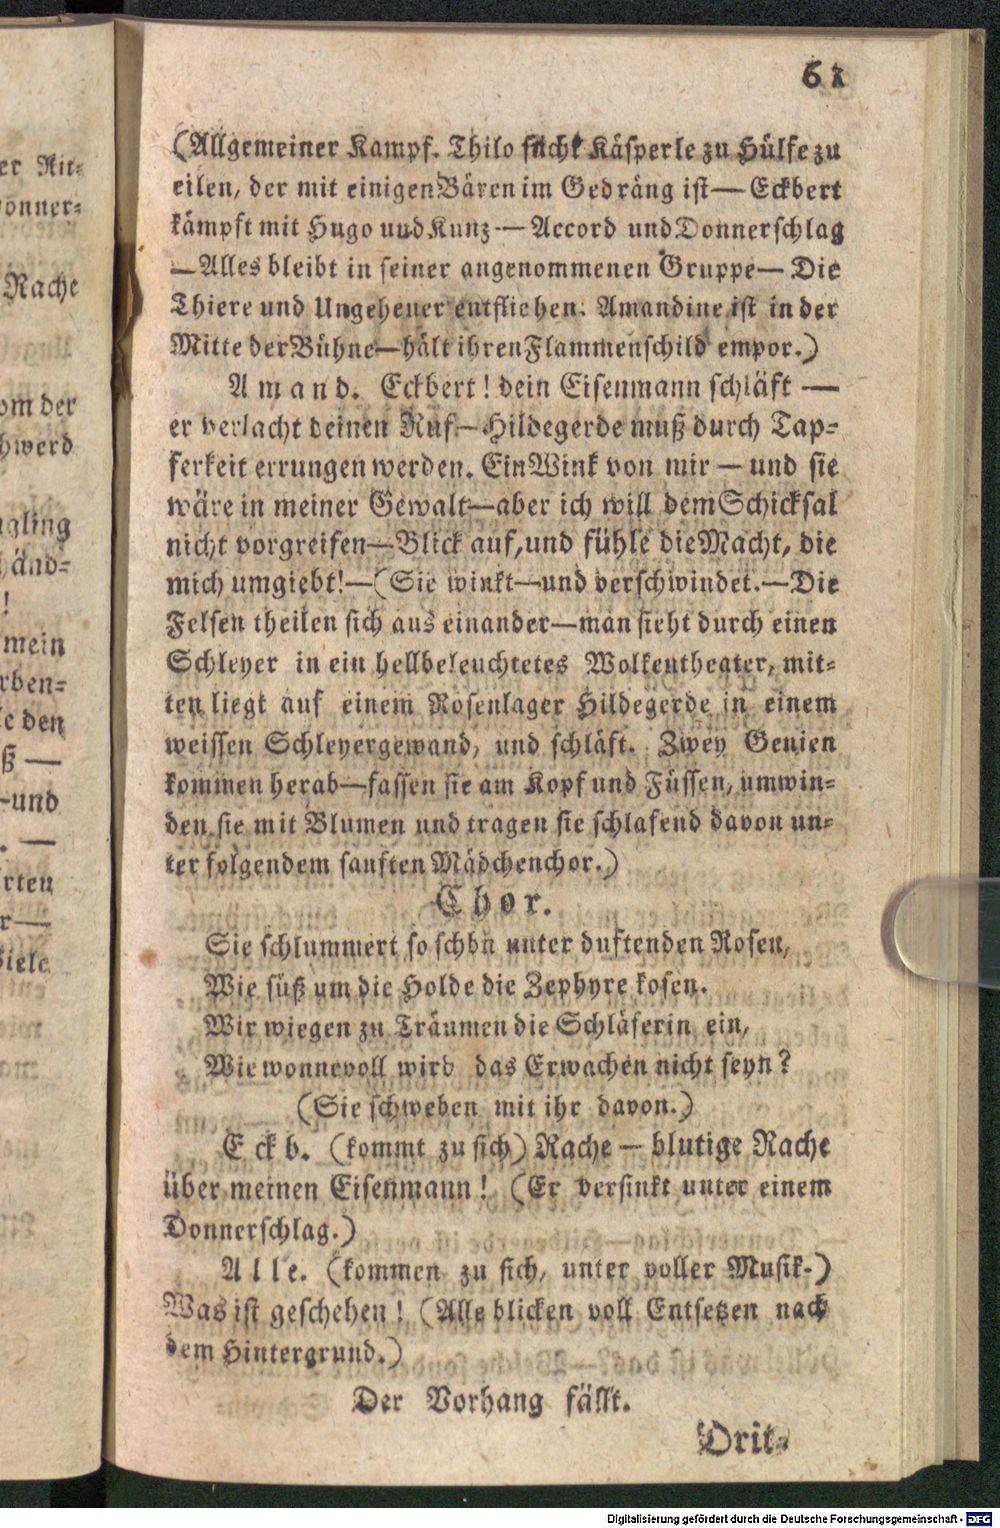 61
(Allgemeiner Kampf. Thilo sucht Käsperle zu Hülfe zu
eilen, der mit einigen Bären im Gedräng ist — Eckbert
kämpft mit Hugo und Kunz — Accord und Donnerschlag
— Alles bleibt in seiner angenommenen Gruppe — Die
Thiere und Ungeheuer entfliehen. Amandine ist in der
Mitte der Bühne — hält ihren Flammenschild empor.)
Amand. Eckbert! dein Eisenmann schläft —
er verlacht deinen Ruf — Hildegerde muß durch Tap-
ferkeit errungen werden. Ein Wink von mir — und sie
wäre in meiner Gewalt — aber ich will dem Schicksal
nicht vorgreifen — Blick auf, und fühle die Macht, die
mich umgiebt! — (Sie winkt — und verschwindet. — Die
Felsen theilen sich aus einander — man sieht durch einen
Schleyer in ein hellbeleuchtetes Wolkentheater, mit-
ten liegt auf einem Rosenlager Hildegerde in einem
weissen Schleyergewand, und schläft. Zwey Genien
kommen herab — fassen sie am Kopf und Füssen, umwin-
den sie mit Blumen und tragen sie schlafend davon un-
ter folgendem sanften Mädchenchor.)
Chor.
Sie schlummert so schön unter duftenden Rosen,
Wie süß um die Holde die Zephyre kosen.
Wir wiegen zu Träumen die Schläferin ein,
Wie wonnevoll wird das Erwachen nicht seyn?
(Sie schweben mit ihr davon.)
Eckb. (kommt zu sich) Rache — blutige Rache
über meinen Eisenmann! (Er versinkt unter einem
Donnerschlag.)
Alle. (kommen zu sich, unter voller Musik.)
Was ist geschehen! (Alle blicken voll Entsetzen nach
dem Hintergrund.)
Der Vorhang fällt.
Drit-
er Rit-
onner-
Rache
om der
hwerd
ngling
änd-
!
mein
rben-
le den
ß —
-und
. —
rten
r —
iele
Digitalisierung gefördert durch die Deutsche Forschungsgemeinschaft - DFG